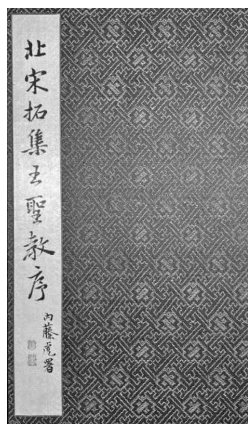 北宋拓集王聖教序
內藤虎署